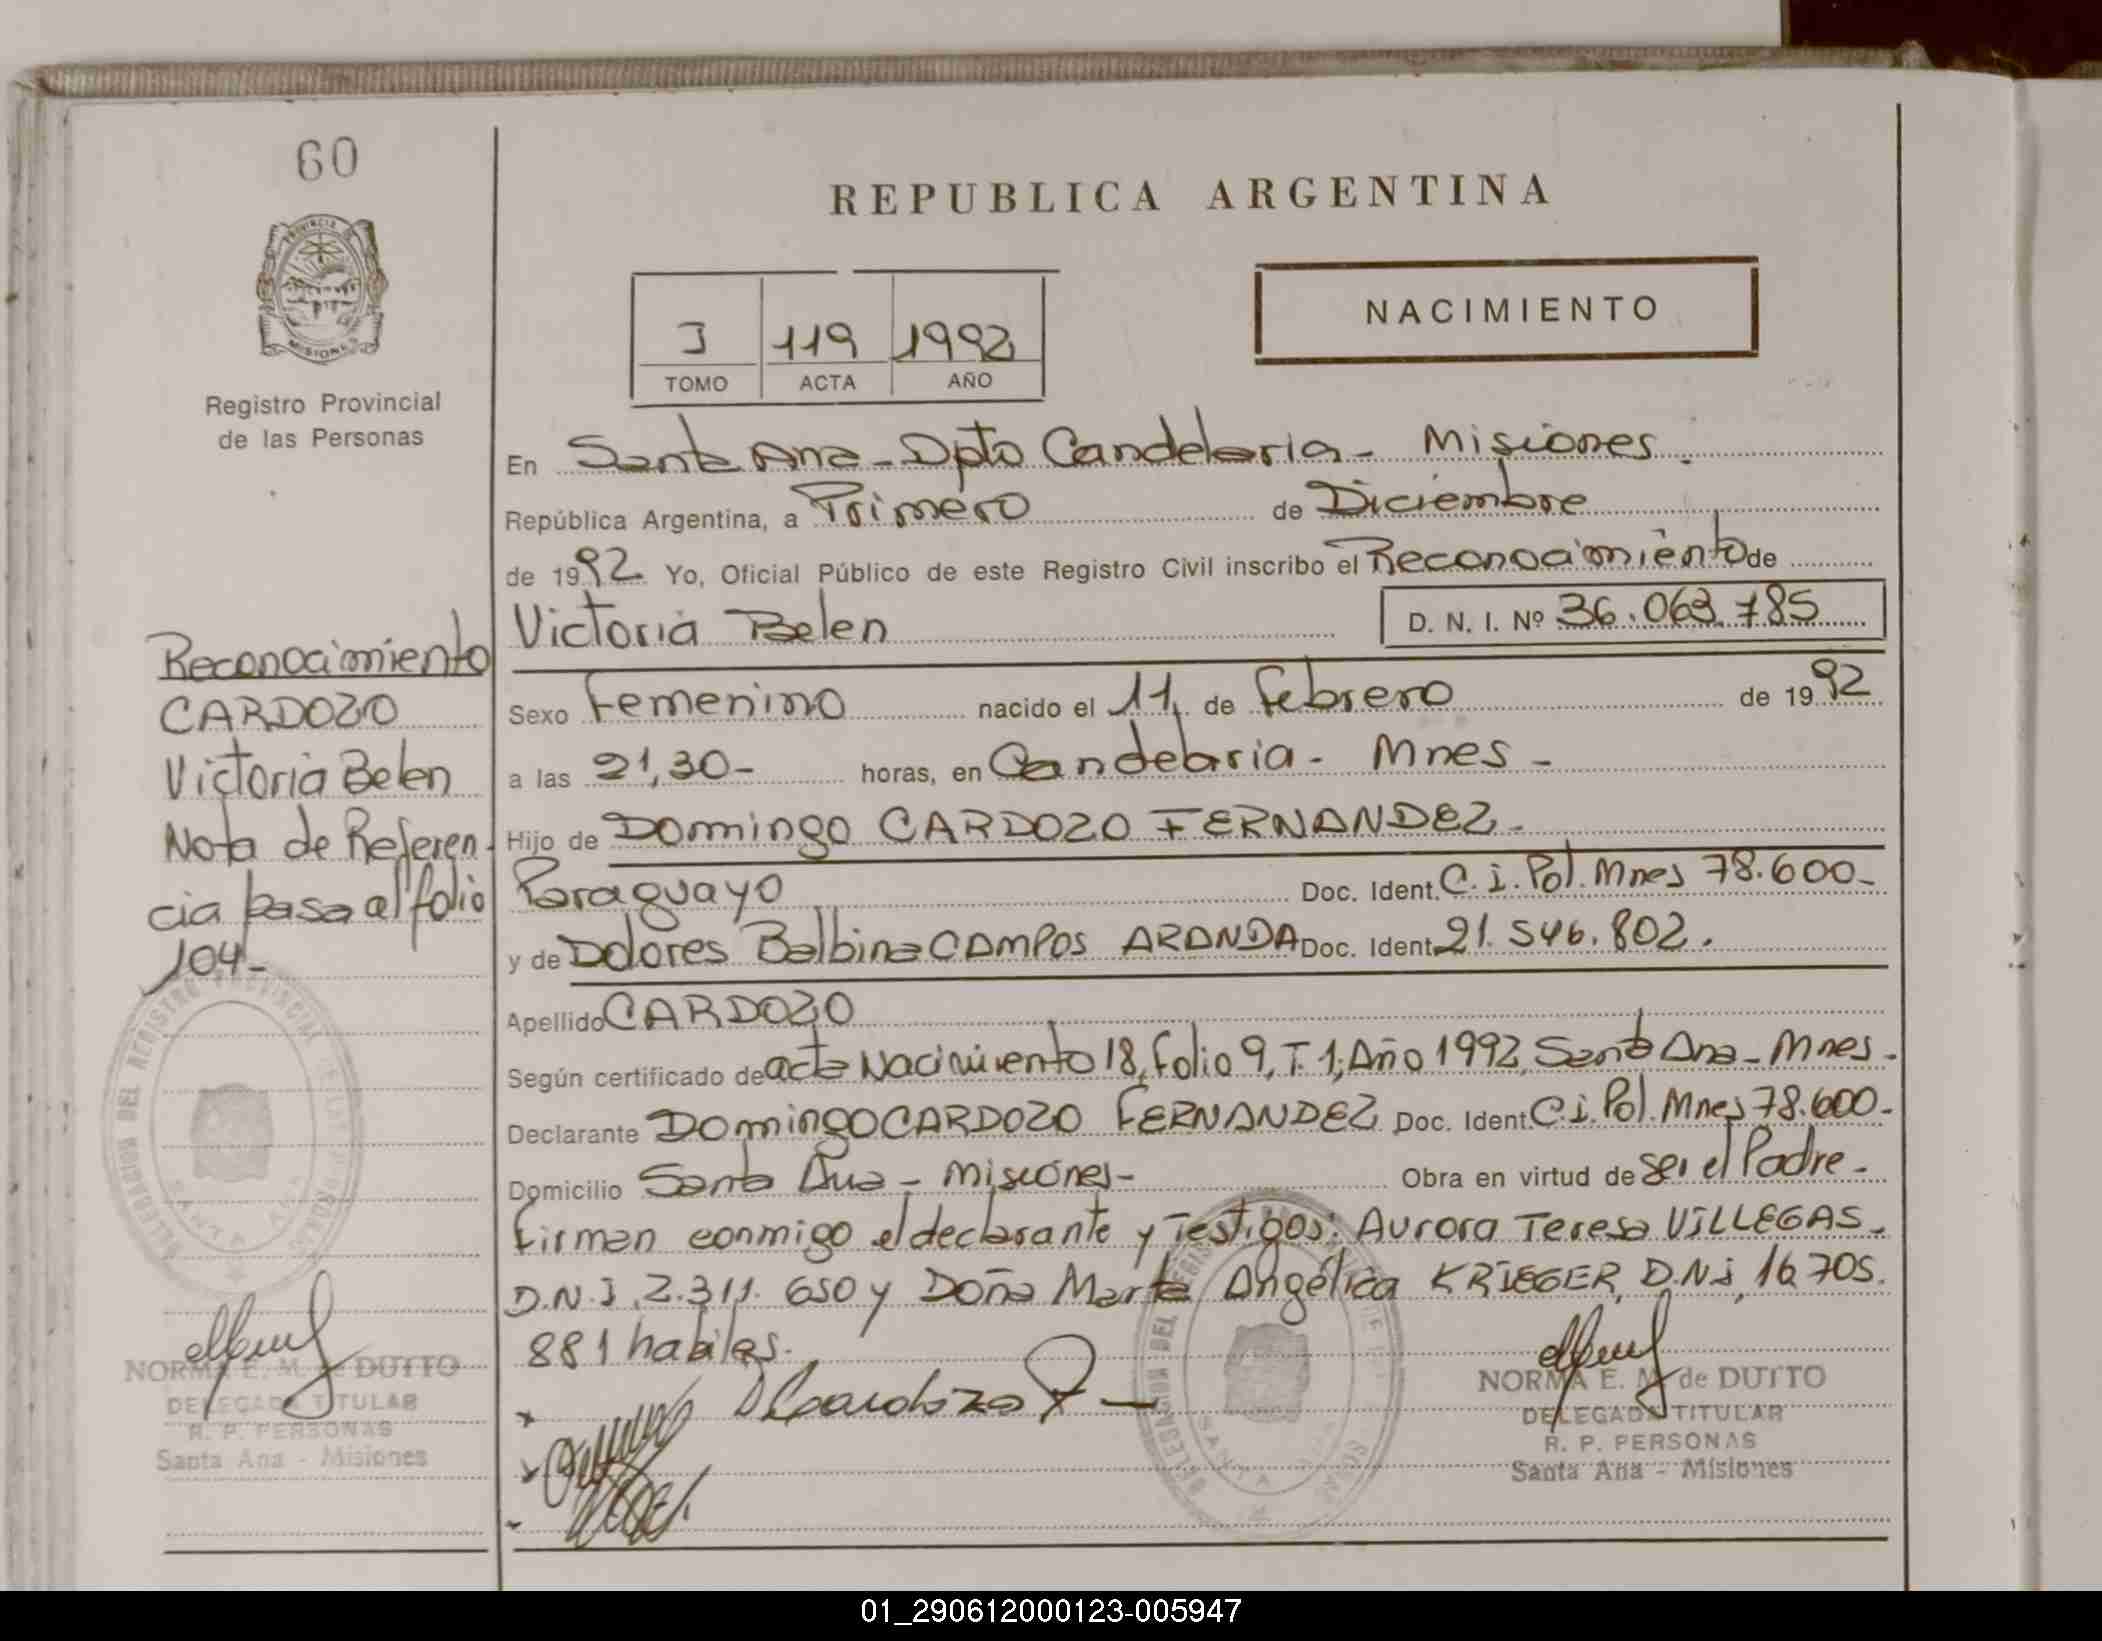 60
PROVINCIA DE
MISIONES
Registro Provincial
de las Personas
REPUBLICA ARGENTINA
NACIMIENTO
I 119 1992
TOMO ACTA AÑO
En Santa Ana - Dpto Candelaria - Misiones.
República Argentina, a Primero de Diciembre
de 1992 Yo, Oficial Público de este Registro Civil inscribo el Reconocimiento de
Victoria Belen D. N. I. Nº 36.063.785
Sexo Femenino nacido el 11 de Febrero de 1992
a las 21,30- horas, en Candelaria - Mnes -
Hijo de Domingo CARDOZO FERNANDEZ -
Paraguayo Doc. Ident. C.i. Pol. Mnes 78.600-
y de Dolores Balbina CAMPOS ARANDA Doc. Ident. 21.546.802.
Apellido CARDOZO
Según certificado de acta Nacimiento 18, Folio 9, T. 1, Año 1992, Santa Ana - Mnes -
Declarante Domingo CARDOZO FERNANDEZ Doc. Ident. C.i. Pol. Mnes 78.600-
Domicilio Santa Ana - Misiones - Obra en virtud de ser el Padre -
Firman conmigo el declarante y Testigos: Aurora Teresa VILLEGAS -
D.N.I. 2.311.650 y Doña Marta Angélica KRIEGER, D.N.i, 16.705.
881 habiles.
NORMA E. M. de DUTTO
DELEGADA TITULAR
R. P. PERSONAS
Santa Ana - Misiones
Reconocimiento
CARDOZO
Victoria Belen
Nota de Referen-
cia pasa al folio
104-
DELEGACION DEL REGISTRO PROVINCIAL DE LAS PERSONAS
SANTA ANA
NORMA E. M. de DUTTO
DELEGADA TITULAR
R. P. PERSONAS
Santa Ana - Misiones
01_290612000123-005947